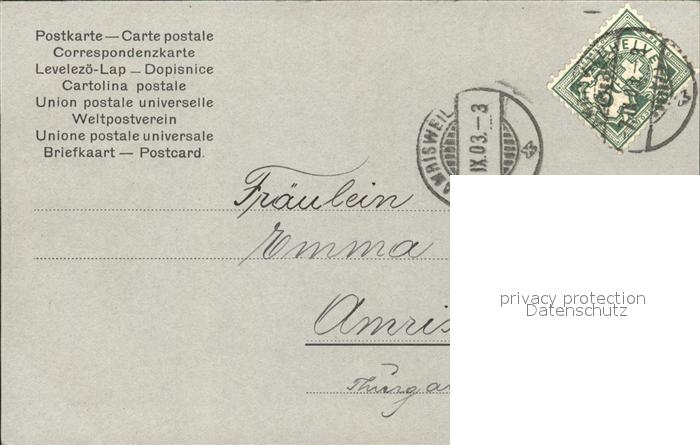 Postkarte — Carte postale
Correspondenzkarte
Levelező-Lap — Dopisnice
Cartolina postale
Union postale universelle
Weltpostverein
Unione postale universale
Briefkaart — Postcard.
HELVETIA
AMRISWEIL
IX.03.–3
Fräulein
Emma
Amris
Thurga
privacy protection
Datenschutz